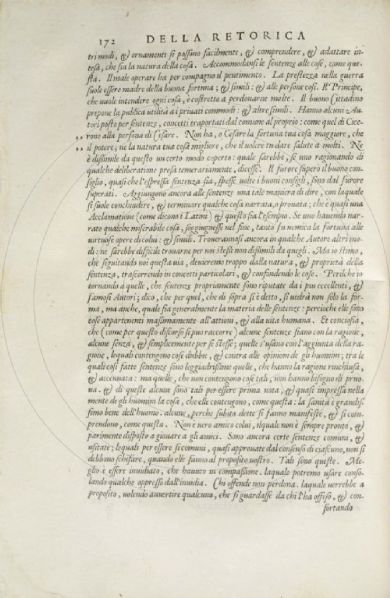 172 DELLA RETORICA
tri modi, & ornamenti si possono facilmente, & comprendere, & adattare in-
tesa, che sia la natura della cosa. Accommodansi le sentenze alle cose, come que-
sta. Il male operare ha per compagno il pentimento. La prestezza nella guerra
suole essere madre della buona fortuna; & simili: & alle persone così. Il Principe,
che vuole intendere ogni cosa, è costretto a perdonarne molte. Il buono Cittadino
prepone la publica utilità a i privati commodi: & altre simili. Hanno alcuni Au-
tori posto per sentenze, concetti trapportati dal comune al proprio: come quel di Cice-
rone alla persona di Cesare. Non ha, o Cesare la fortuna tua cosa maggiore, che
il potere; ne la natura tua cosa migliore, che il volere in dare salute a molti. Ne
è dissimile da questo un certo modo coperto: quale sarebbe, se uno ragionando di
qualche deliberatione presa temerariamente, dicesse: Il furore superò il buono con-
siglio, quasi che l'espressa sentenza sia, spesse volte i buoni consigli, sono dal furore
superati. Aggiungono ancora alle sentenze una tale maniera di dire, con la quale
si suole conchiudere, & terminare qualche cosa narrata, o provata: che è quasi una
Acclamatione (come dicono i Latini) & questo sia l'esempio. Se uno havendo nar-
rato qualche miserabile cosa, soggiugnesse nel fine, tanto fu nemica la fortuna alle
virtuose opere di colui: & simili. Troverannosi ancora in qualche Autore altri mo-
di: ne sarebbe difficile trovarne per noi stessi non dissimili da questi. Ma io stimo,
che seguitando noi questa via, devieremo troppo dalla natura, & proprietà della
sentenza, trascorrendo in concetti particolari, & confundendo le cose. Perilche io
tornando a quelle, che sentenze propriamente sono riputate da i più eccellenti, &
famosi Autori; dico, che per quel, che di sopra si è detto, si vedrà non solo la for-
ma, ma anche, quale sia generalmente la materia delle sentenze: percioche elle sono
cose appartenenti massimamente all'attioni, & alla vita humana. Et conciosia,
che (come per questo discorso si può raccorre) alcune sentenze siano con la ragione,
alcune senza, & semplicemente per se stesse; quelle s'usano con l'aggiunta della ra-
gione, lequali contengono cose dubbie, & contra alle opinioni de gli huomini; tra le
quali così fatte sentenze sono leggiadrissime quelle, che hanno la ragione rinchiusa,
& accennata: ma quelle, che non contengono cose tali, non hanno bisogno di pruo-
va. & di quelle alcune sono tali per essere prima note, & quasi impresse nella
mente de gli huomini la cosa, che elle contengono, come questa: la sanità è grandis-
simo bene dell'huomo: alcune, perche subito dette si fanno manifeste, & si com-
prendono, come questa. Non è vero amico colui, ilquale non è sempre pronto, &
parimente disposto a giovare a gli amici. Sono ancora certe sentenze comuni, &
usitate: lequali per essere sì comuni, quasi approvate dal consenso di ciascuno, non si
debbono schifare, quando elle fanno al proposito nostro. Tali sono queste. Me-
glio è essere invidiato, che havuto in compassione. laquale potremo usare conso-
lando qualche oppresso dall'invidia. Chi offende non perdona. laquale verrebbe a
proposito, volendo avvertire qualcuno, che si guardasse da chi l'ha offeso, & con-
fortando